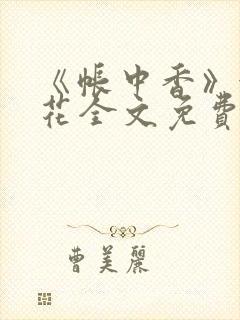 《帐中香》
花全文免費
曹美麗